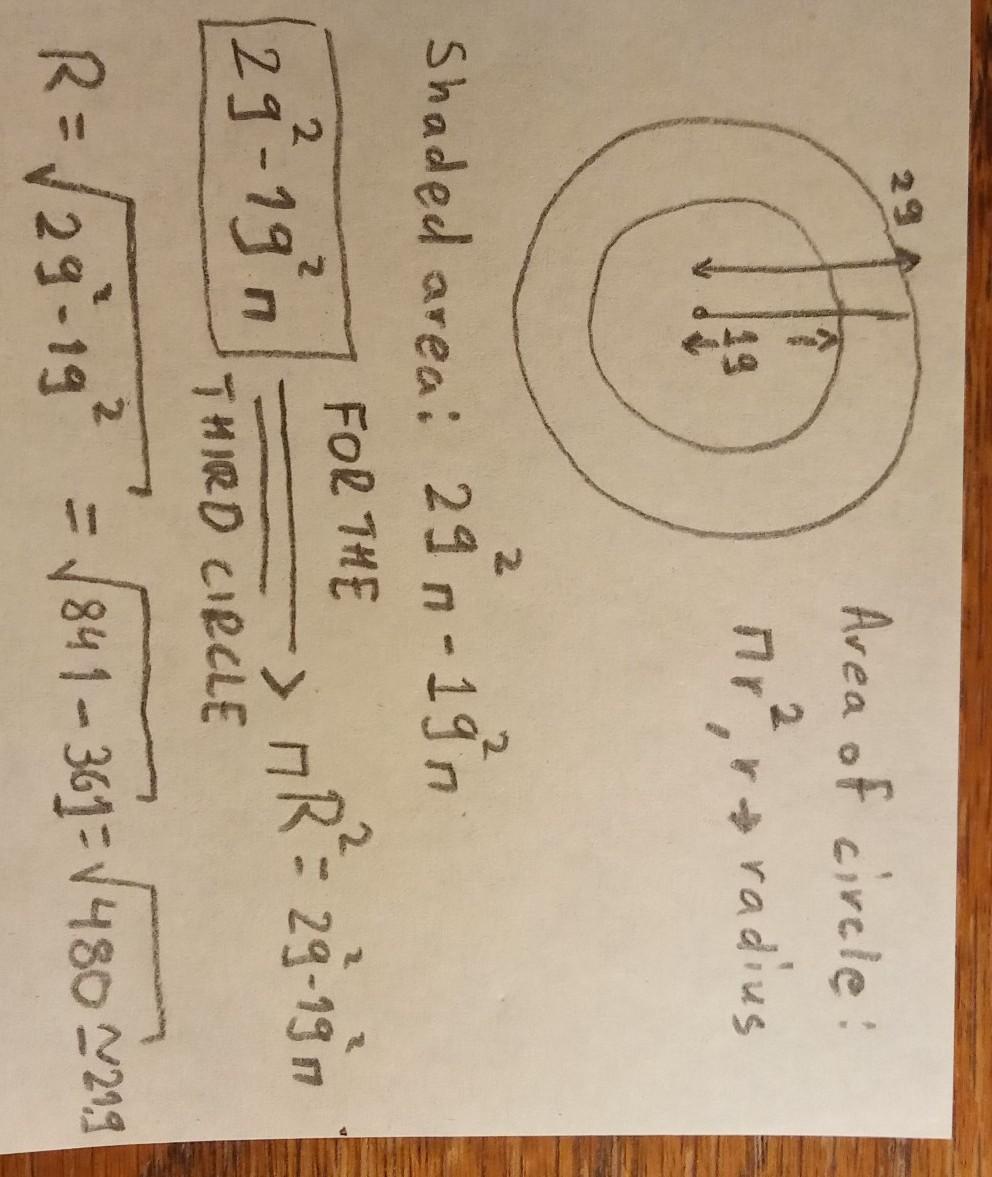 29
19
Area of circle:
πr², r→radius
Shaded area: 29²π - 19²π
29² - 19²π
FOR THE
THIRD CIRCLE
πR² = 29² - 19²π
R = √29² - 19² = √841 - 361 = √480 ≃ 21.9